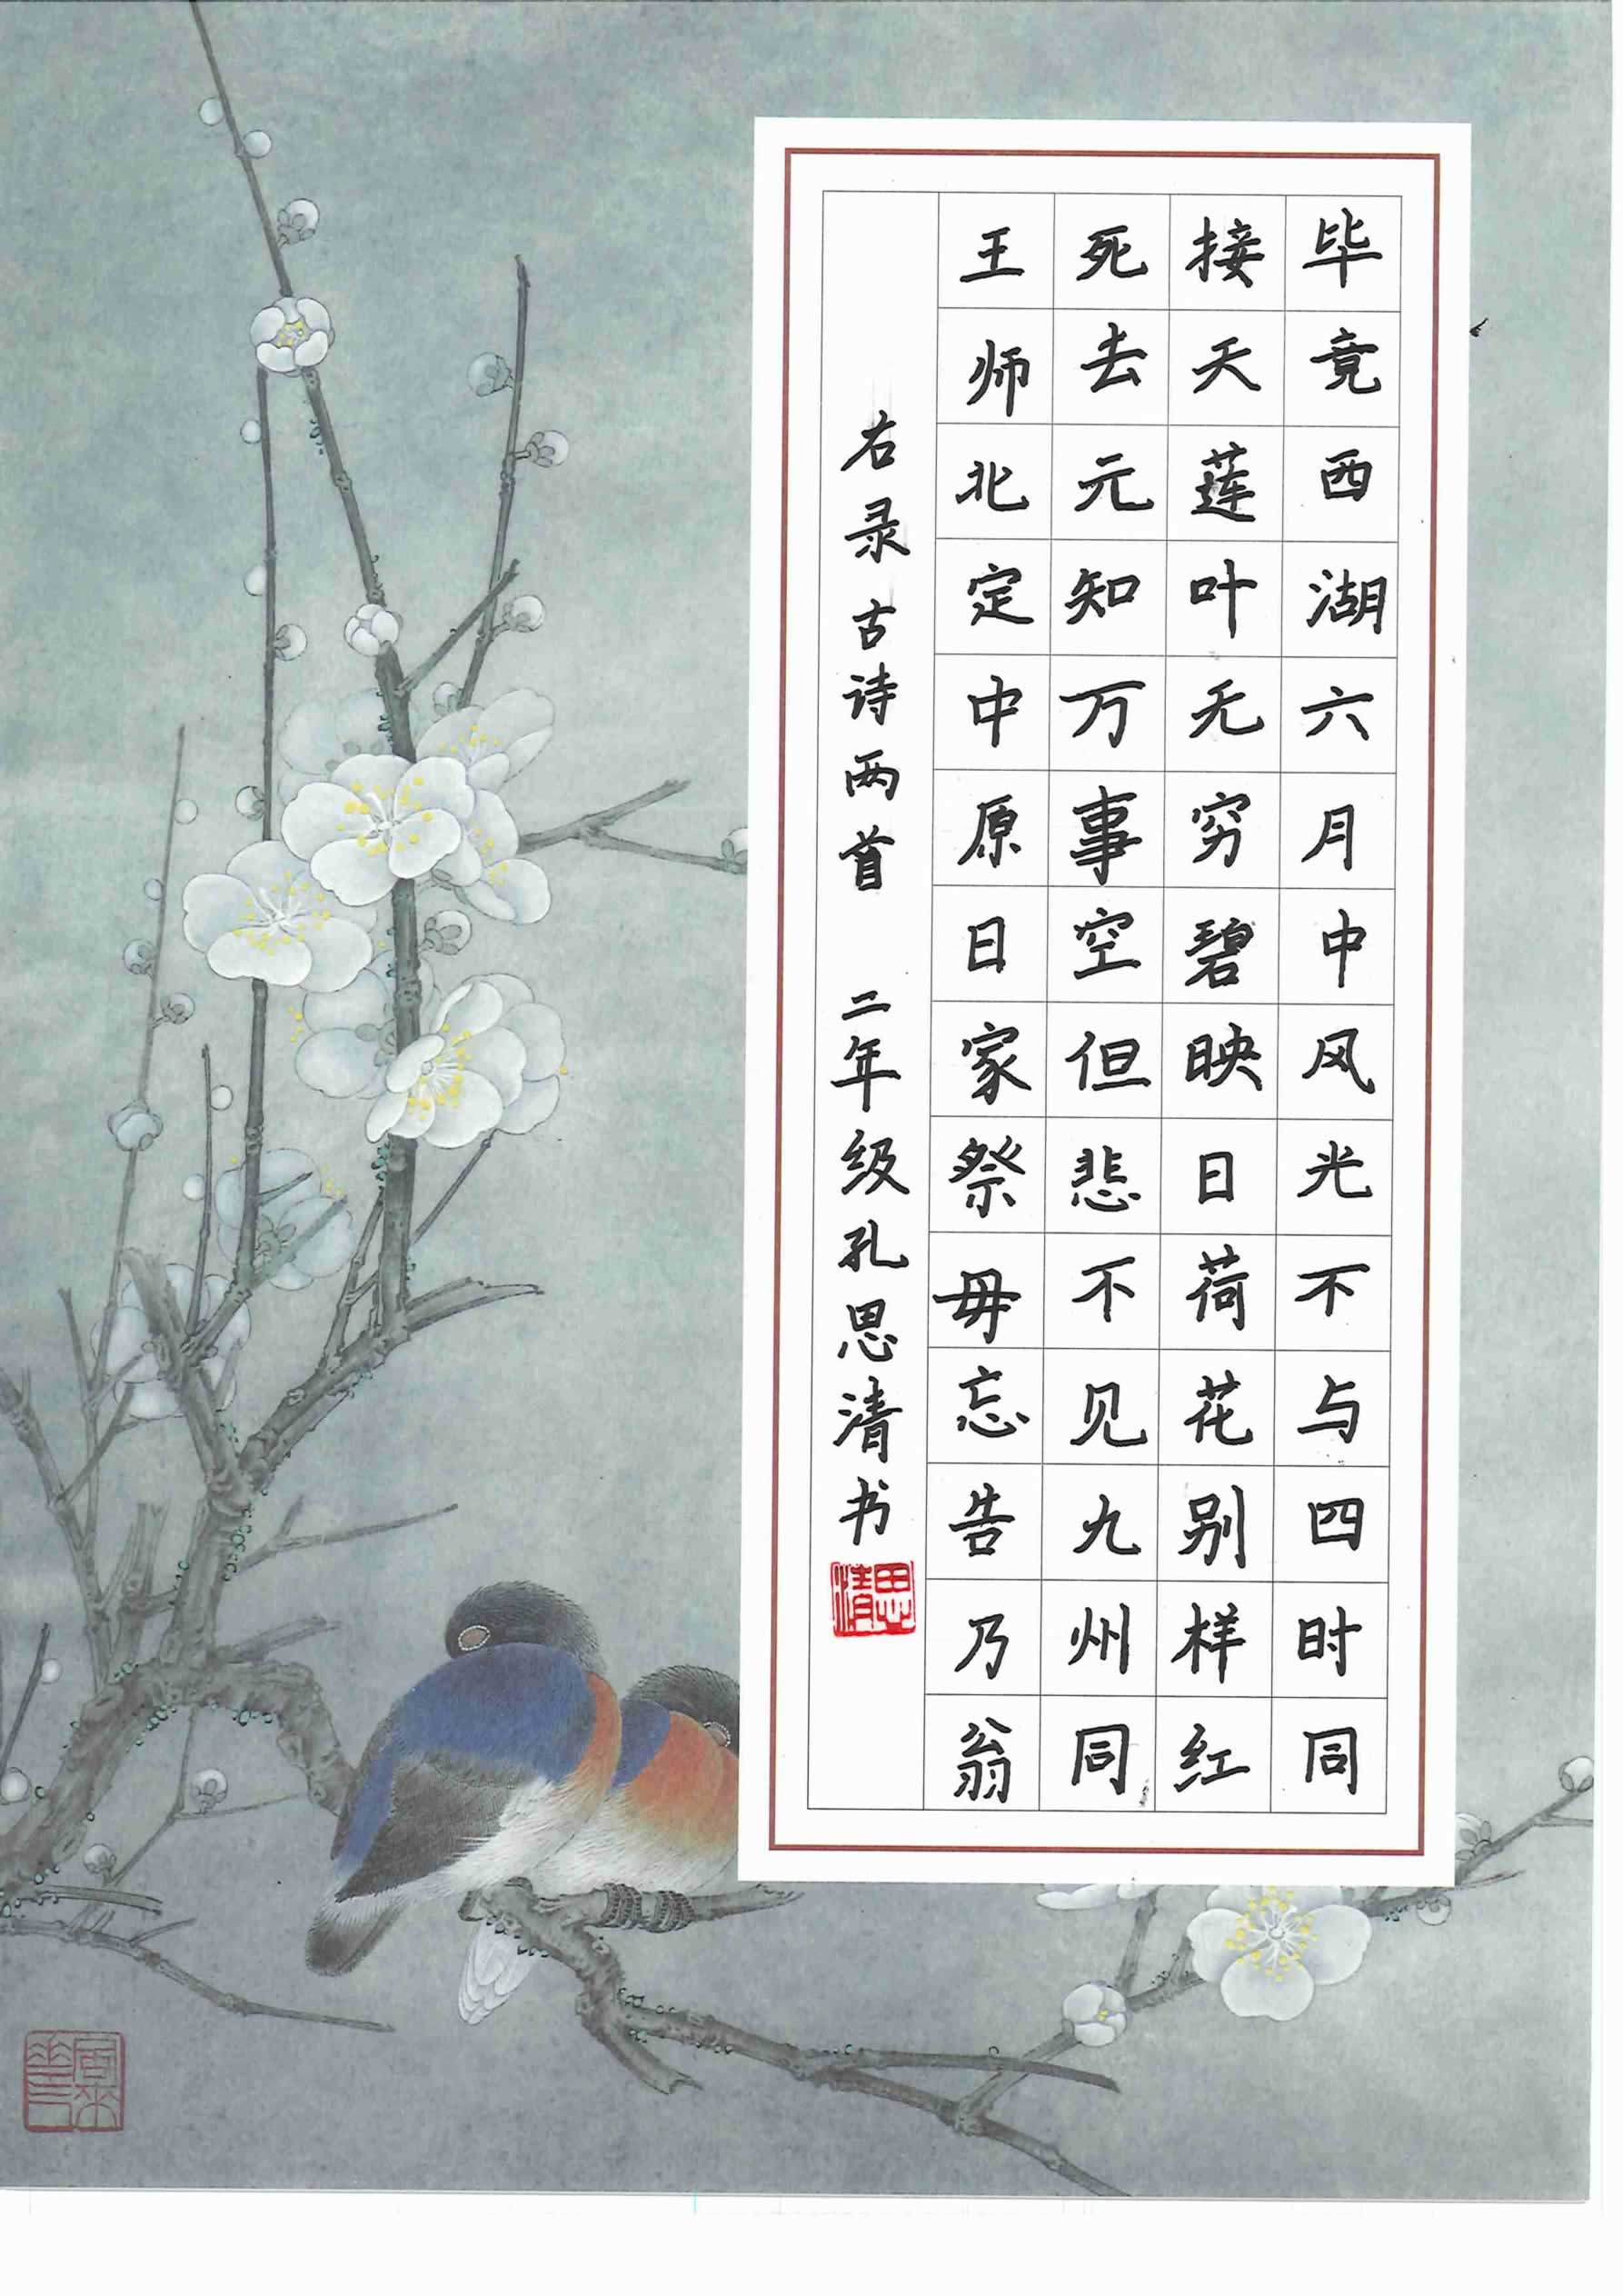 毕竟西湖六月中风光不与四时同
接天莲叶无穷碧映日荷花别样红
死去元知万事空但悲不见九州同
王师北定中原日家祭毋忘告乃翁
右录古诗两首 二年级孔思清书
思清